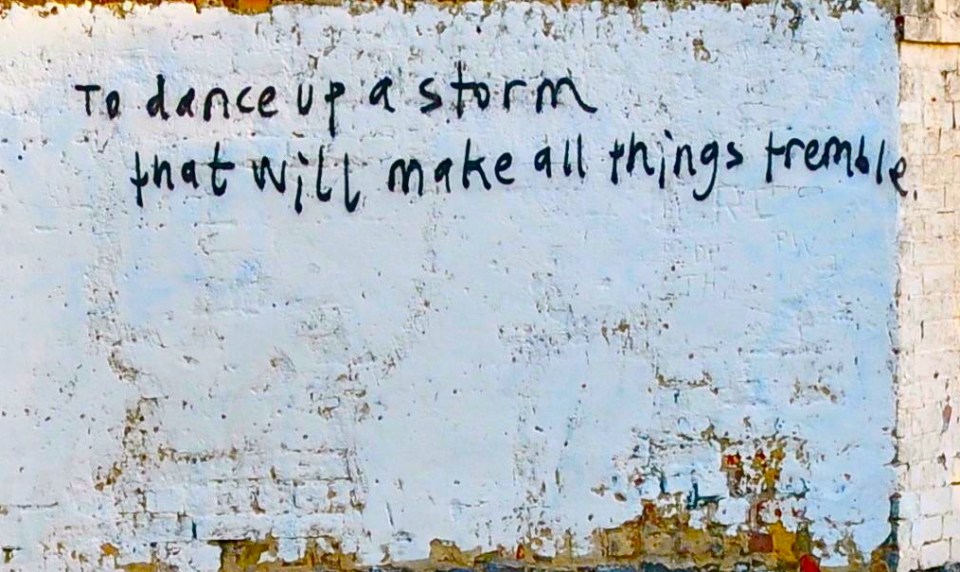 To dance up a storm
that will make all things tremble.